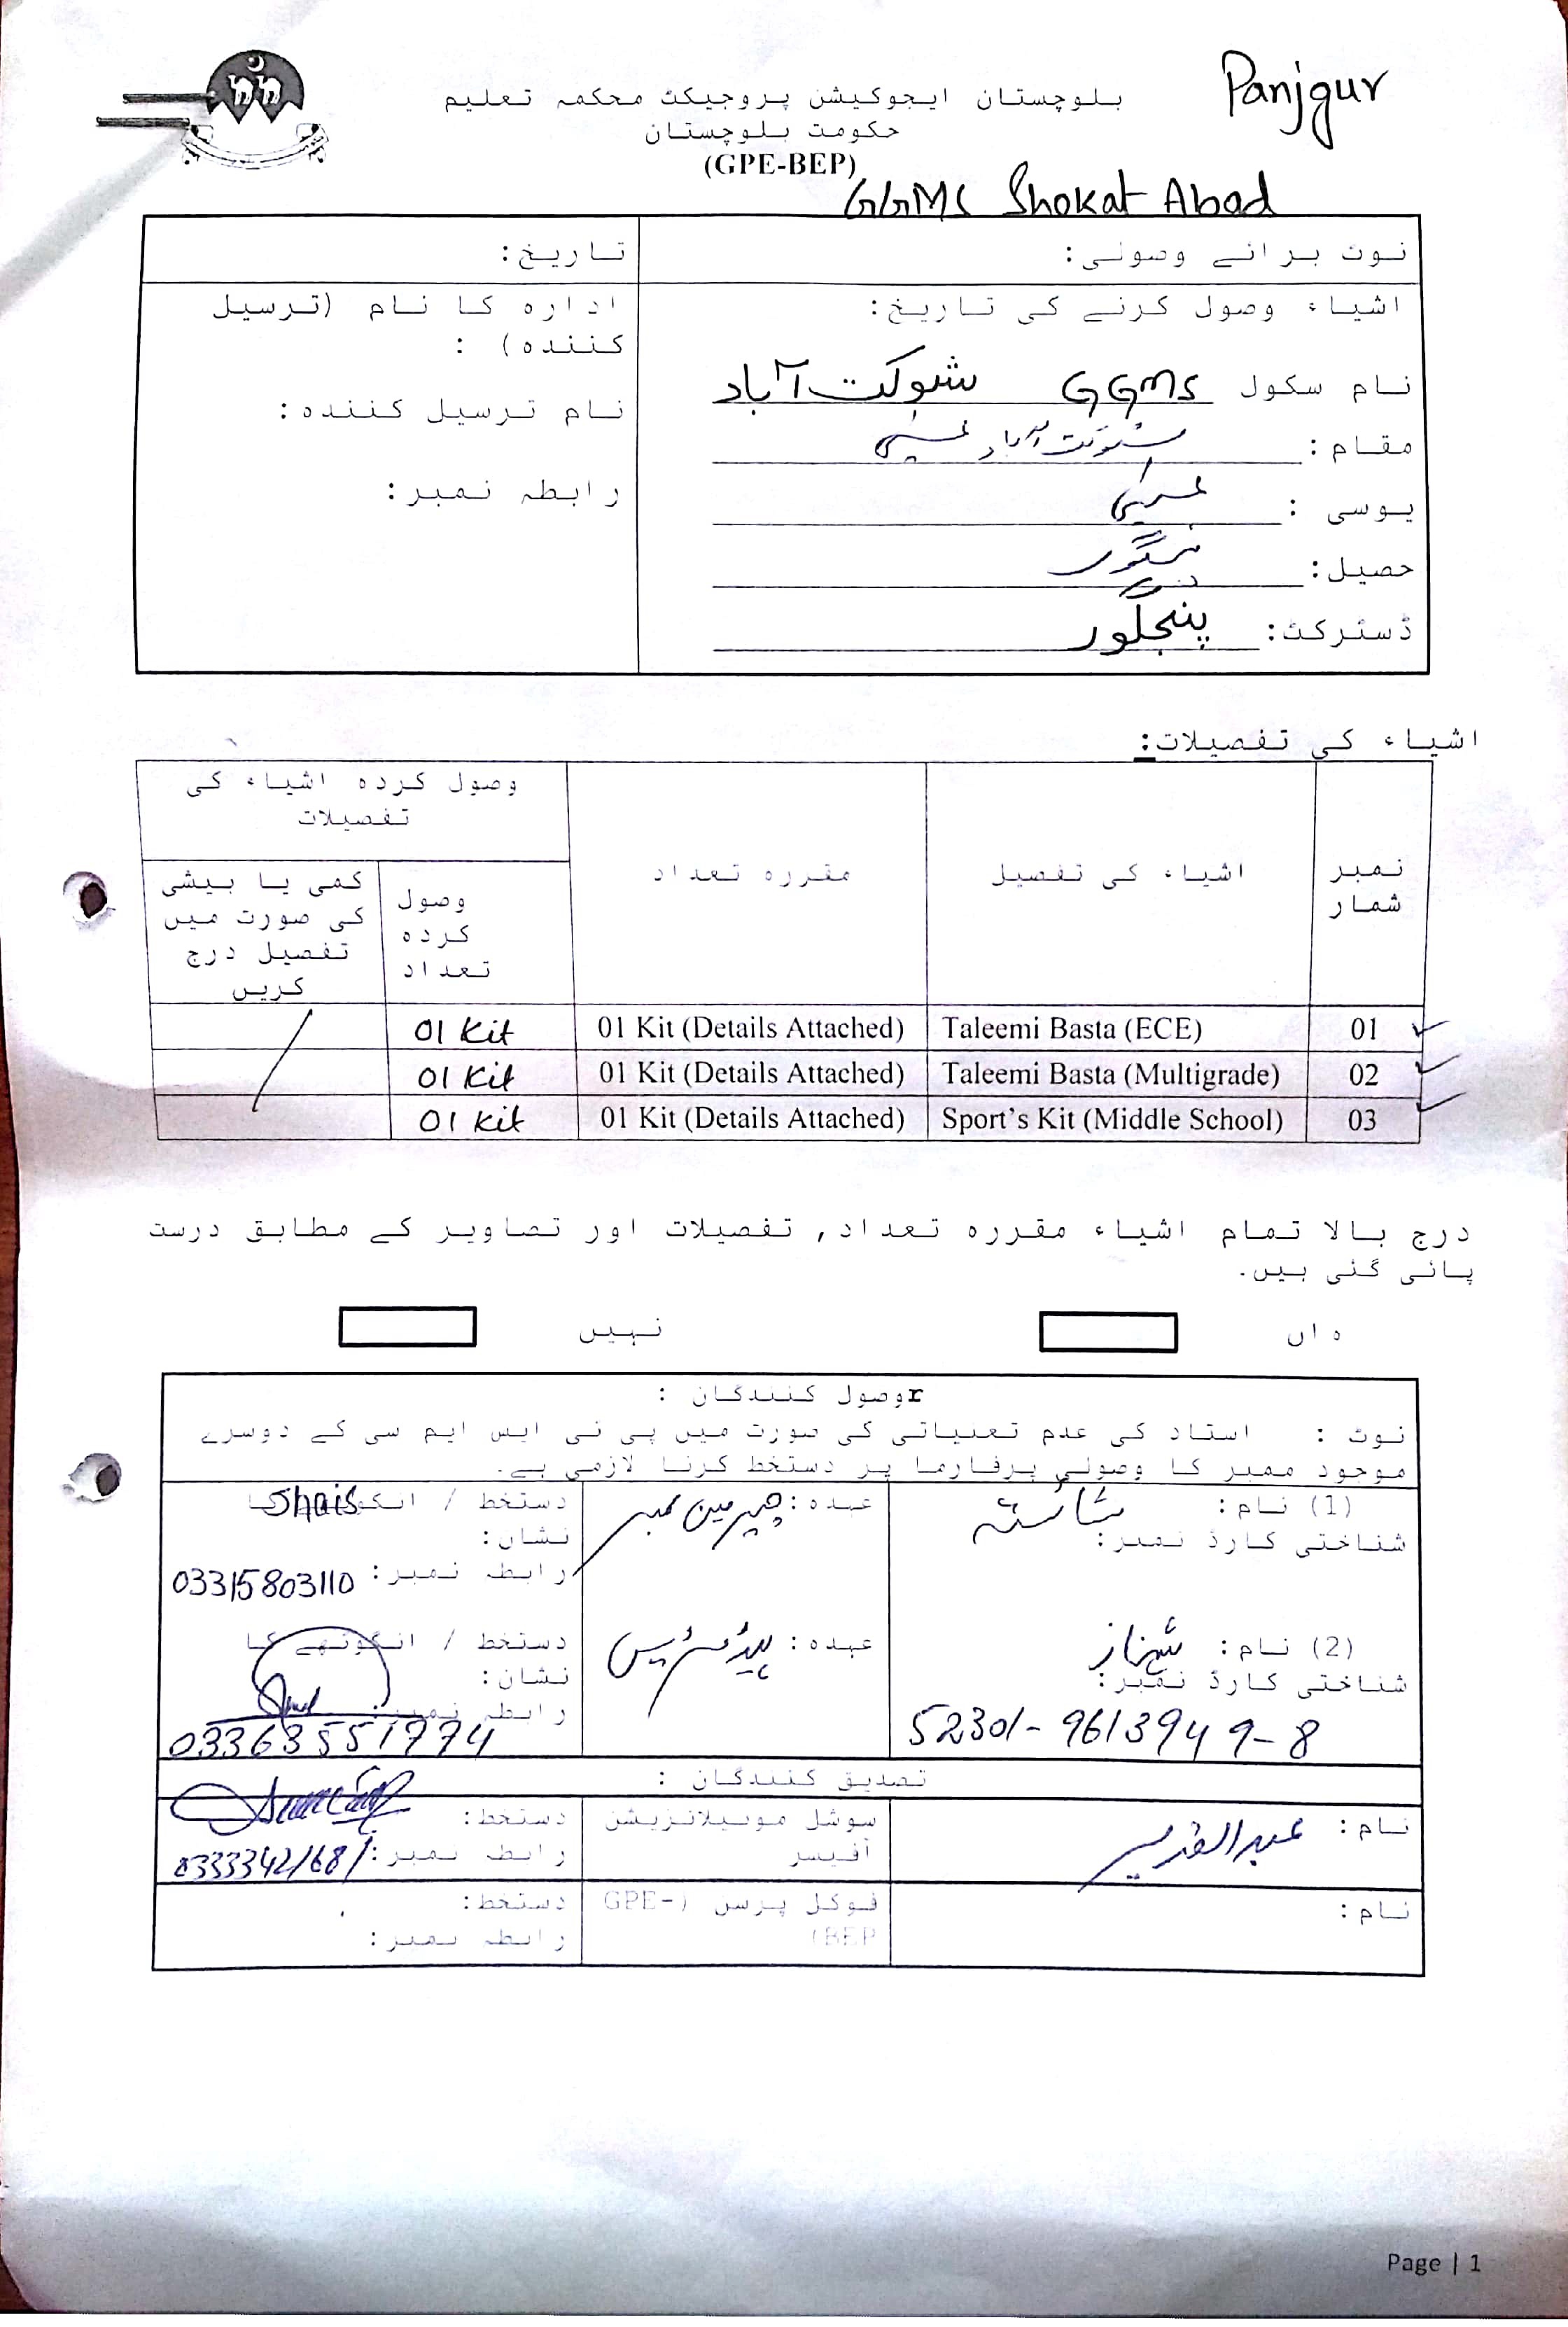 Panjgur
بلوچستان ایجوکیشن پروجیکٹ محکمہ تعلیم
حکومت بلوچستان
(GPE-BEP)
GGMS Shokat Abad
نوٹ برائے وصولی:
تاریخ:
اشیاء وصول کرنے کی تاریخ:
نام سکول GGMS شوکت آباد
مقام: شوکت آباد
یوسی :
حصیل:
ڈسٹرکٹ: پنجگور
ادارہ کا نام (ترسیل
کنندہ) :
نام ترسیل کنندہ:
رابطہ نمبر:
اشیاء کی تفصیلات:
نمبر شمار
اشیاء کی تفصیل
مقررہ تعداد
وصول کردہ اشیاء کی تفصیلات
وصول کردہ تعداد
کمی یا بیشی کی صورت میں تفصیل درج کریں
01 Taleemi Basta (ECE) 01 Kit (Details Attached) 01 Kit
02 Taleemi Basta (Multigrade) 01 Kit (Details Attached) 01 Kit
03 Sport's Kit (Middle School) 01 Kit (Details Attached) 01 Kit
درج بالا تمام اشیاء مقررہ تعداد, تفصیلات اور تصاویر کے مطابق درست
پائی گئی ہیں.
ہاں
نہیں
rوصول کنندگان :
نوٹ : استاد کی عدم تعنیاتی کی صورت میں پی ٹی ایس ایم سی کے دوسرے
موجود ممبر کا وصولی پرفارما پر دستخط کرنا لازمی ہے.
(1) نام: شائستہ
شناختی کارڈ نمبر:
عہدہ: چیرمین ممبر
دستخط / انگوٹھے کا Shais
نشان:
رابطہ نمبر: 03315803110
(2) نام: شہناز
شناختی کارڈ نمبر:
52301-9613949-8
عہدہ: ہیڈمسٹریس
دستخط / انگوٹھے کا
نشان:
رابطہ نمبر:
033635551774
تصدیق کنندگان :
نام: عبدالقدیر
سوشل موبیلائزیشن
آفیسر
دستخط:
رابطہ نمبر: 03333421681
نام:
فوکل پرسن (GPE-
BEP)
دستخط:
رابطہ نمبر:
Page | 1